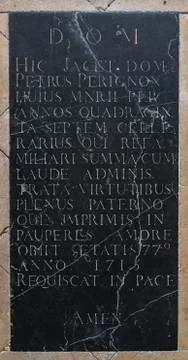 D O M
HIC JACET DOM
PETRUS PERIGNON
HUIUS MNRII PER
ANNOS QUADRAGIN
TA SEPTEM CELLE
RARIUS QUI RE FA
MILIARI SUMMA CUM
LAUDE ADMINIS
TRATA VIRTUTIBUS
PLENUS PATERNO
QUE IMPRIMIS IN
PAUPERES AMORE
OBIIT ÆTATIS 77º
ANNO 1715
REQUISCAT IN PACE
AMEN